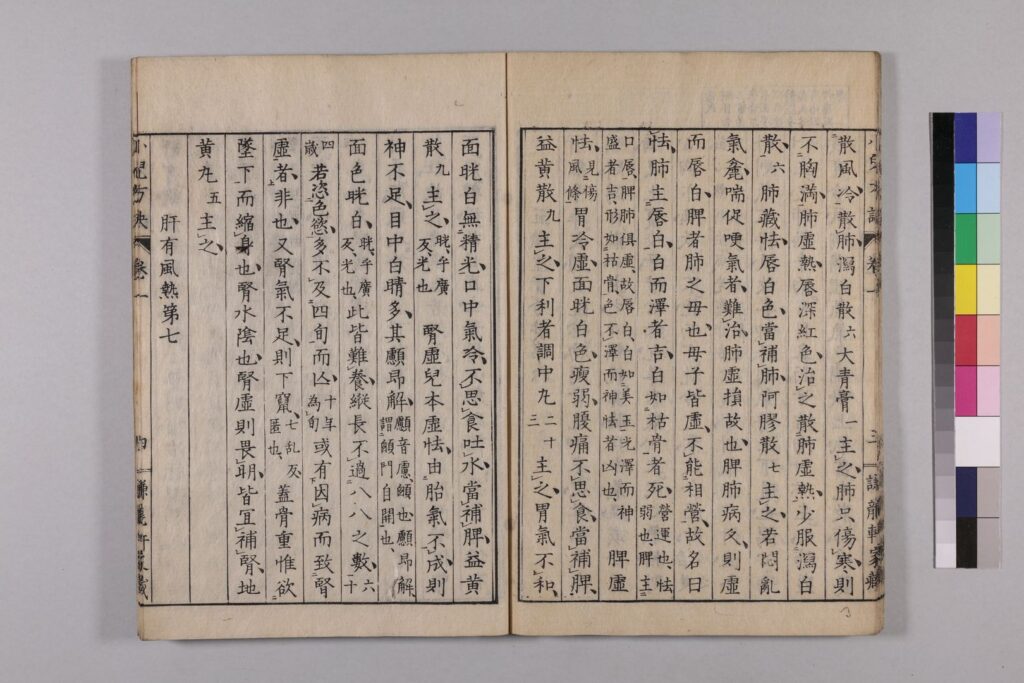 散風冷散肺瀉白散六大青膏一主之肺只傷寒則
不胸滿肺虛熱唇深紅色治之散肺虛熱少服瀉白
散六肺藏怯唇白色當補肺阿膠散七主之若悶亂
氣麄喘促哽氣者難治肺虛損故也脾肺病久則虛
而唇白脾者肺之母也母子皆虛不能相營故名曰
怯肺主唇白白而澤者吉白如枯骨者死營運也怯弱也脾主
口唇脾肺俱虛故唇白白如美玉光澤而神盛者吉形如枯骨色不澤而神怯者凶也 脾虛
怯見傷風條胃冷虛面㿠白色瘦弱腹痛不思食當補脾
益黃散九主之下利者調中丸二十三主之胃氣不和
面㿠白無精光口中氣冷不思食吐水當補脾益黃
散九主之㿠乎廣反光也 腎虛兒本虛怯由胎氣不成則
神不足目中白睛多其顱昻解顱音慮也顱昻解謂門自開也
面色㿠白㿠乎廣反光也此皆難養縱長不過八八之數六十
四歲若恣色慾多不及四旬而亾十年為旬或有因病而致腎
虛者非也又腎氣不足則下竄七乱反匿也蓋骨重惟欲
墜下而縮身也腎水陰也腎虛則畏明皆宜補腎地
黃丸五主之
肝有風熱第七
卷一
四